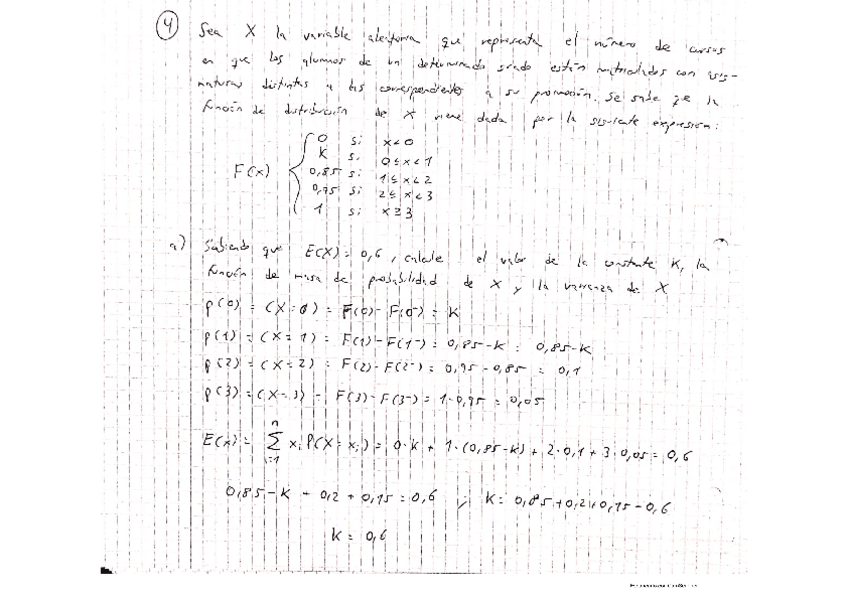 4
Sea X la variable aleatoria que representa el número de cursos
en que los alumnos de un determinado grado están matriculados con asig-
naturas distintas a las correspondientes a su promoción. Se sabe que la
función de distribución de X viene dada por la siguiente expresión:
F(x) { 0 si x<0
K si 0≤x<1
0,85 si 1≤x<2
0,95 si 2≤x<3
1 si x≥3
a) Sabiendo que E(X) = 0,6, calcule el valor de la constante K, la
función de masa de probabilidad de X y la varianza de X
p(0) = (X=0) = F(0) - F(0⁻) = K
p(1) = (X=1) = F(1) - F(1⁻) = 0,85-K = 0,85-K
p(2) = (X=2) = F(2) - F(2⁻) = 0,95 - 0,85 = 0,1
p(3) = (X=3) = F(3) - F(3⁻) = 1-0,95 = 0,05
E(x) = Σ xi P(X=xi) = 0·K + 1·(0,85-K) + 2·0,1 + 3·0,05 = 0,6
0,85 - K + 0,2 + 0,15 = 0,6 ; K = 0,85 + 0,2 + 0,15 - 0,6
K = 0,6